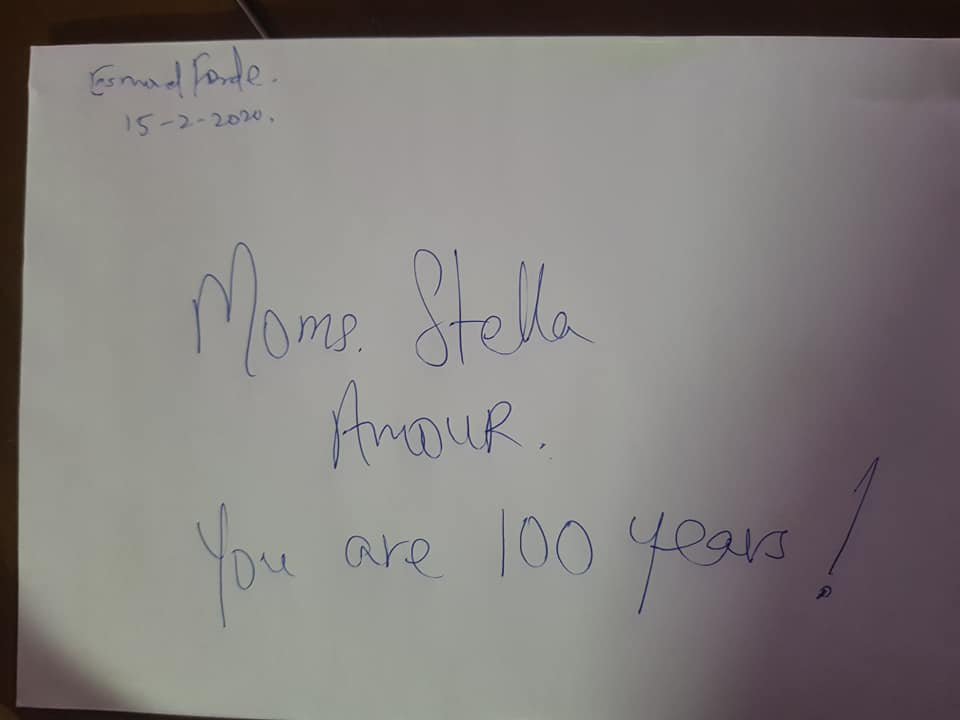 Esmond Forde.
15-2-2020.
Moms. Stella
AMOUR.
You are 100 years!